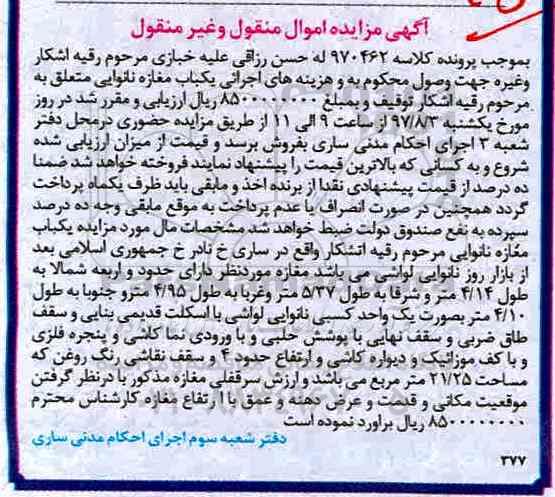 آگهی مزایده اموال منقول وغیر منقول
بموجب پرونده کلاسه ۹۷۰۴۶۲ له حسن رزاقی علیه خبازی مرحوم رقیه اشکار
وغیره جهت وصول محکوم به و هزینه های اجرائی یکباب مغازه نانوایی متعلق به
مرحوم رقیه اشکار توقیف و بمبلغ ۸۵۰۰۰۰۰۰۰۰ ریال ارزیابی و مقرر شد در روز
مورخ یکشنبه ۹۷/۸/۳ از ساعت ۹ الی ۱۱ از طریق مزایده حضوری درمحل دفتر
شعبه ۳ اجرای احکام مدنی ساری بفروش برسد و قیمت از میزان ارزیابی شده
شروع و به کسانی که بالاترین قیمت را پیشنهاد نمایند فروخته خواهد شد ضمنا
ده درصد از قیمت پیشنهادی نقدا از برنده اخذ و مابقی باید ظرف یکماه پرداخت
گردد همچنین در صورت انصراف یا عدم پرداخت به موقع مابقی وجه ده درصد
سپرده به نفع صندوق دولت ضبط خواهد شد مشخصات مال مورد مزایده یکباب
مغازه نانوایی مرحوم رقیه اتشکار واقع در ساری خ نادر خ جمهوری اسلامی بعد
از بازار روز نانوایی لواشی می باشد مغازه موردنظر دارای حدود و اربعه شمالا به
طول ۴/۱۴ متر و شرقا به طول ۵/۳۷ متر وغربا به طول ۴/۹۵ مترو جنوبا به طول
۴/۱۰ متر بصورت یک واحد کسبی نانوایی لواشی با اسکلت قدیمی بنایی و سقف
طاق ضربی و سقف نهایی با پوشش حلبی و با ورودی نما کاشی و پنجره فلزی
و با کف موزائیک و دیواره کاشی و ارتفاع حدود ۴ و سقف نقاشی رنگ روغن که
مساحت ۲۱/۲۵ متر مربع می باشد و ارزش سرقفلی مغازه مذکور با درنظر گرفتن
موقعیت مکانی و قدمت و عرض دهنه و عمق با ارتفاع مغازه کارشناس محترم
۸۵۰۰۰۰۰۰۰۰ ریال براورد نموده است
دفتر شعبه سوم اجرای احکام مدنی ساری
۳۷۷